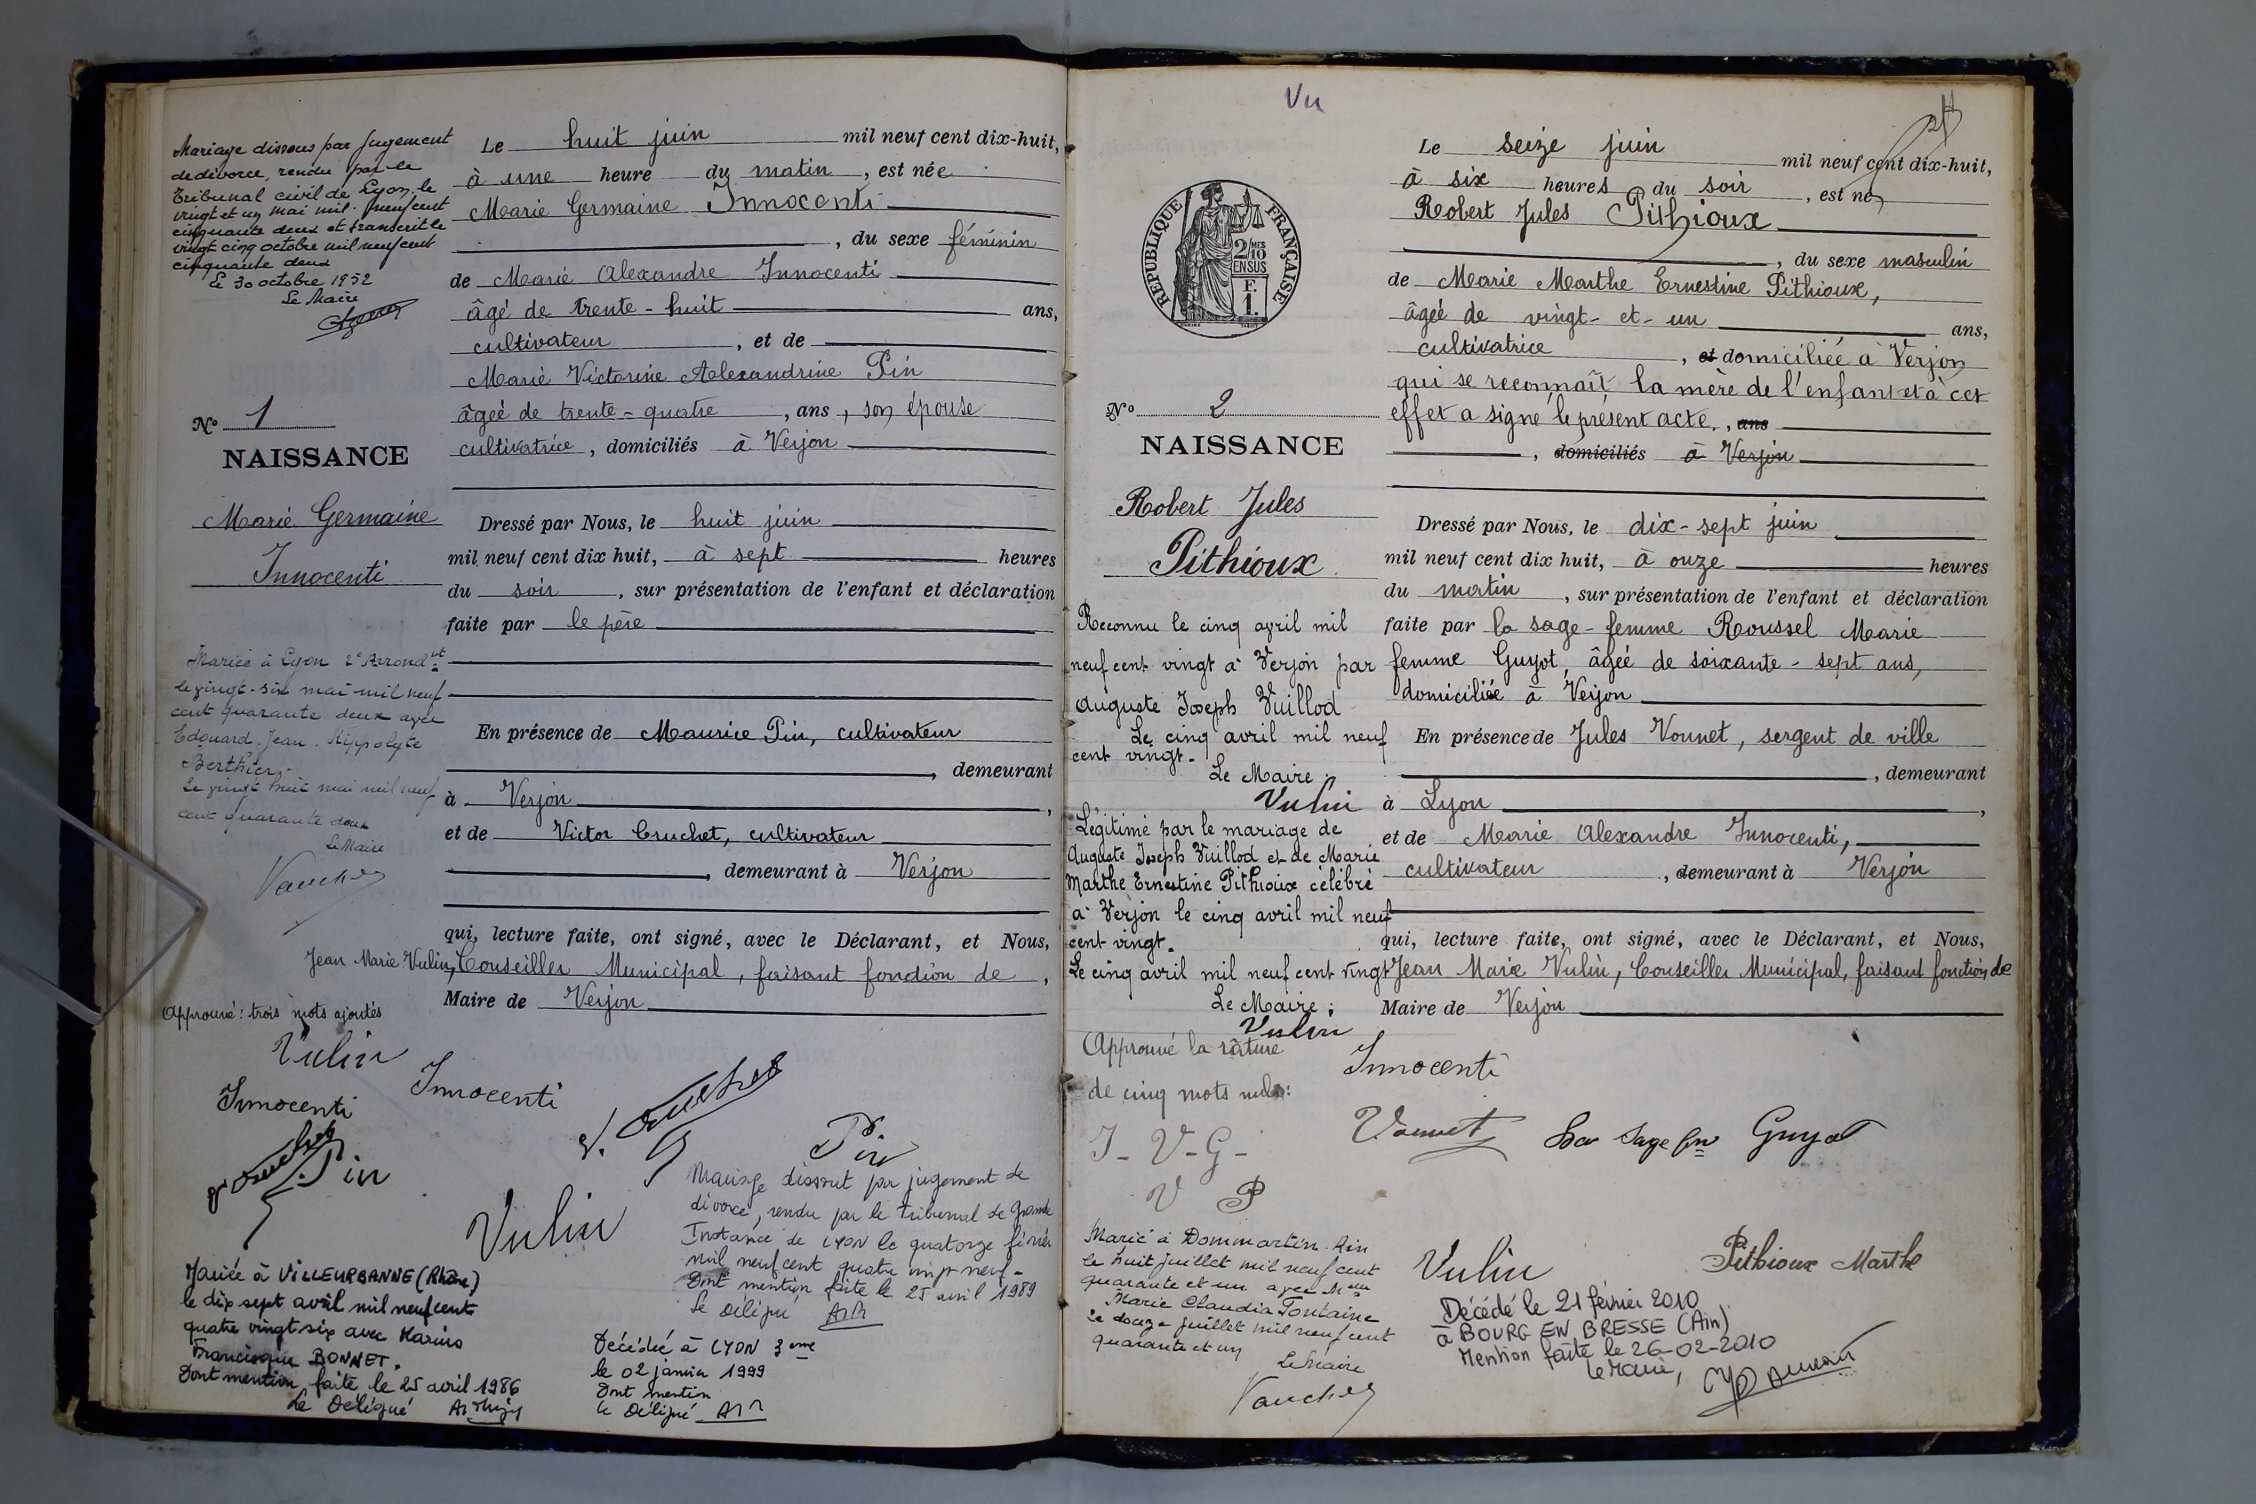 Mariage dissous par jugement
de divorce, rendu par le
Tribunal civil de Lyon, le
vingt et un mai mil neuf cent
cinquante deux et transcrit le
vingt cinq octobre mil neuf cent
cinquante deux
Le 30 octobre 1952
Le Maire
N° 1
NAISSANCE
Marie Germaine
Innocenti
Mariée à Lyon 2e Arrondt
le vingt-six mai mil neuf
cent quarante deux avec
Edouard Jean Hippolyte
Berthier
Le vingt huit mai mil neuf
cent quarante deux
Le Maire
Vaucher
Le huit juin mil neuf cent dix-huit,
à une heure du matin, est née
Marie Germaine Innocenti
, du sexe féminin
de Marie Alexandre Innocenti
âgé de trente-huit ans,
cultivateur, et de
Marie Victorine Alexandrine Pin
âgée de trente-quatre, ans, son épouse
cultivatrice, domiciliés à Verjon
Dressé par Nous, le huit juin
mil neuf cent dix huit, à sept heures
du soir, sur présentation de l'enfant et déclaration
faite par le père
En présence de Maurice Pin, cultivateur
, demeurant
à Verjon,
et de Victor Cruchet, cultivateur
, demeurant à Verjon
qui, lecture faite, ont signé, avec le Déclarant, et Nous,
Jean Marie Vulin, Conseiller Municipal, faisant fonction de,
Maire de Verjon
Approuvé: trois mots ajoutés
Vulin
Innocenti
Innocenti
Pin
Pin
Vulin
Mariage dissout par jugement de
divorce, rendu par le tribunal de Grande
Instance de LYON le quatorze février
mil neuf cent quatre vingt neuf.
Dont mention faite le 25 avril 1989
Le Délégué
Mariée à VILLEURBANNE (Rhône)
le dix sept avril mil neuf cent
quatre vingt six avec Marius
Francisque BONNET.
Dont mention faite le 25 avril 1986
Le Délégué
Décédée à LYON 3eme
le 02 janvier 1999
Dont mention
Le Délégué
Vu
RÉPUBLIQUE FRANÇAISE
2/10MES
EN SUS
F.
1.
N° 2
NAISSANCE
Robert Jules
Pithioux
Reconnu le cinq avril mil
neuf cent vingt à Verjon par
Auguste Joseph Vuillod
Le cinq avril mil neuf
cent vingt.
Le Maire:
Vulin
Légitimé par le mariage de
Auguste Joseph Vuillod et de Marie
Marthe Ernestine Pithioux célébré
à Verjon le cinq avril mil neuf
cent vingt.
Le cinq avril mil neuf cent vingt
Le Maire:
Vulin
Approuvé la râture
de cinq mots nuls:
I - V - G -
V P
Marié à Dommartin Ain
le huit juillet mil neuf cent
quarante et un avec Melle
Marie Claudia Fontaine
Le douze juillet mil neuf cent
quarante et un
Le Maire
Vaucher
Le seize juin mil neuf cent dix-huit,
à six heures du soir, est né
Robert Jules Pithioux
, du sexe masculin
de Marie Marthe Ernestine Pithioux,
âgée de vingt-et-un ans,
cultivatrice, et domiciliée à Verjon
qui se reconnaît la mère de l'enfant et à cet
effet a signé le présent acte, ans
, domiciliés à Verjon
Dressé par Nous, le dix-sept juin
mil neuf cent dix huit, à onze heures
du matin, sur présentation de l'enfant et déclaration
faite par la sage-femme Roussel Marie
femme Guyot, âgée de soixante-sept ans,
domiciliée à Verjon
En présence de Jules Vonnet, sergent de ville
, demeurant
à Lyon,
et de Marie Alexandre Innocenti,
cultivateur, demeurant à Verjon
qui, lecture faite, ont signé, avec le Déclarant, et Nous,
Jean Marie Vulin, Conseiller Municipal, faisant fonction de
Maire de Verjon
Innocenti
Vonnet La sage fm Guyot
Vulin
Pithioux Marthe
Décédé le 21 février 2010
à BOURG EN BRESSE (Ain)
Mention faite le 26-02-2010
le Maire,